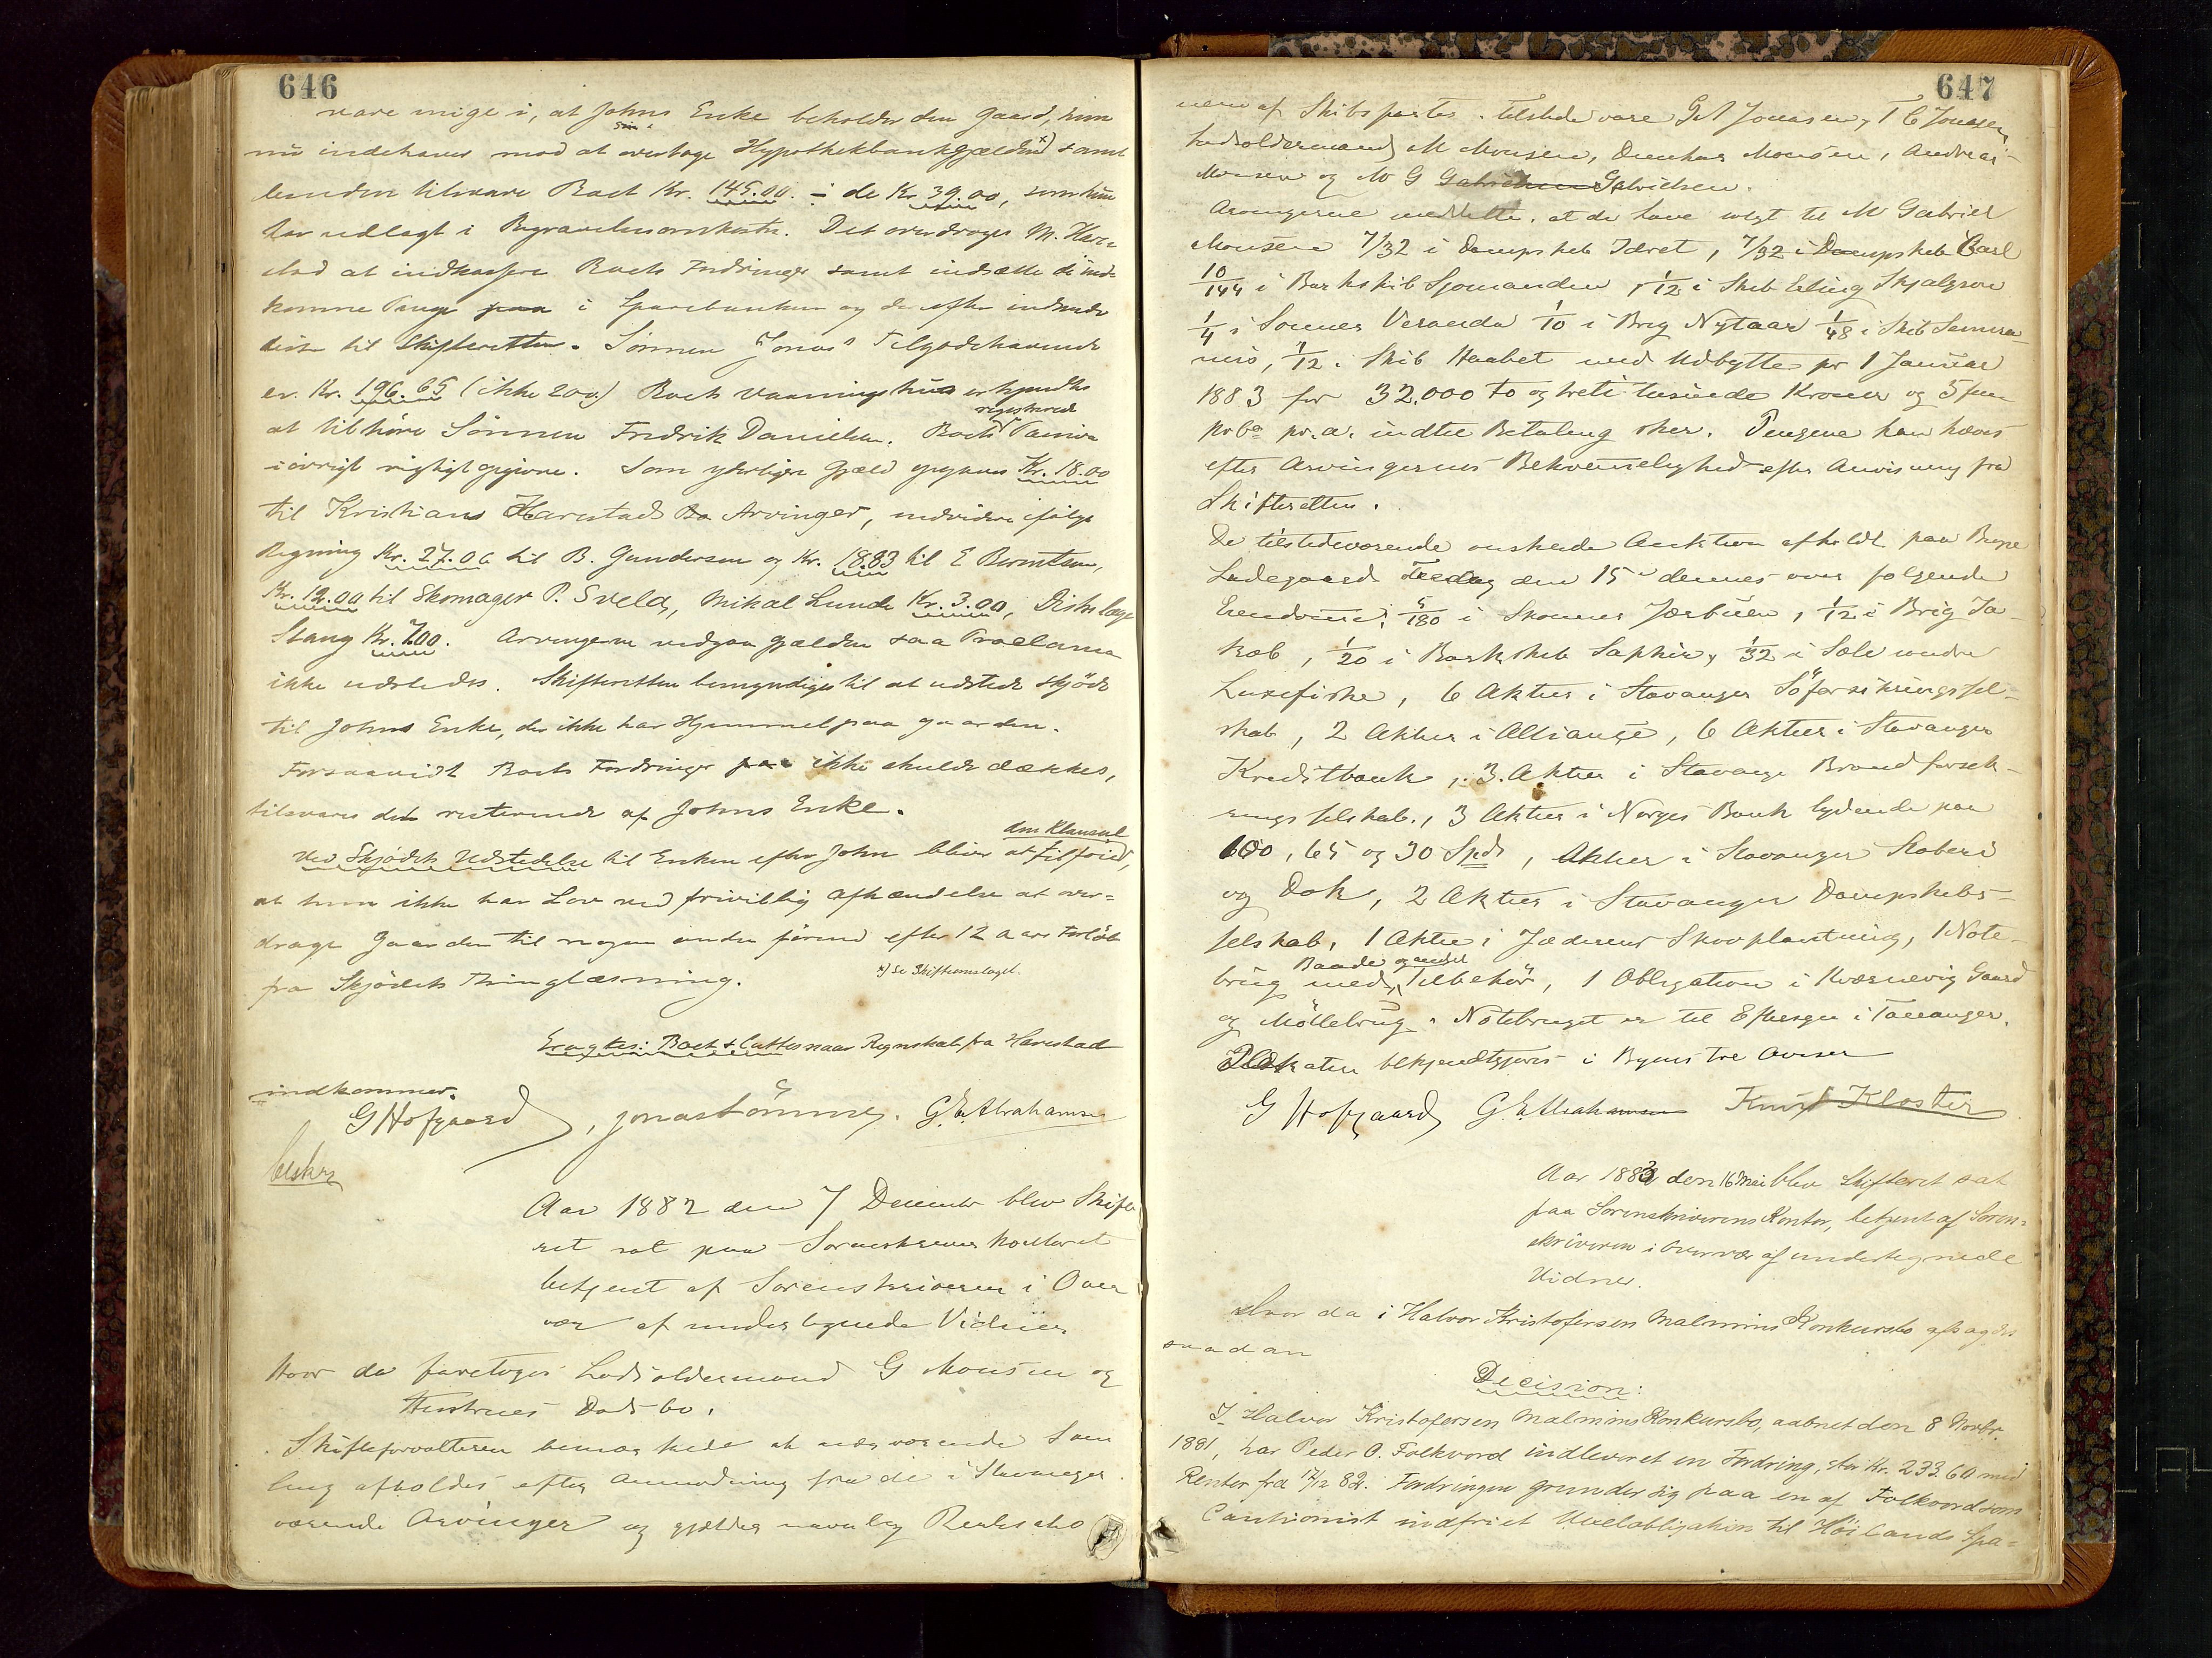 646
vare enige i, at Johns Enke beholder den Gaard, hun
nu indehaver mod at overtage Hypothekbankgjælden x) samt
desuden tilsvare Boet Kr. 145.00. ÷ de Kr. 39.00, som hun
har udlagt i Begravelsesomkostn. Det overdrages M. Hare-
stad at indkassere Boets Fordringer samt indsætte de ind-
komne Penge paa i Sparebanken og derefter indsende
disse til Skifteretten. Sönnen Jonas's Tilgodehavende
er Kr. 196.65 (ikke 200.) Boets Vaaningshus erkjendtes
at tilhöre Sönnen Fredrik Danielsen. Boets registrerede Passiva
iövrigt rigtigt opgivne. Som yderligere Gjæld opgaves Kr. 18.00
til Kristians Harestads Bo Arvinger, endvidere ifölge
Regning Kr. 27.06 til B. Gundersen og Kr. 18.83 til E Berentsen,
Kr. 12.00 til Skomager P. Sveld, Mikal Lunde Kr. 3.00, Distr.læge
Stang Kr. 7.00. Arvingerne vedgaa Gjælden saa Proclama
ikke udstedes. Skifteretten bemyndiges til at udstede Skjöde
til Johns Enke, der ikke har Hjemmel paa Gaarden.
Forsaavidt Boets Fordringer paa ikke skulde dækkes,
tilsvares det resterende af Johns Enke.
Ved Skjödets Udstedelse til Enken efter John bliver den Klausul at tilföie,
at hun ikke har Lov ved frivillig Afhændelse at over-
drage Gaarden til nogen anden förend efter 12 Aars Forlöb
fra Skjödets Thinglæsning.
x) Se Skifteomslaget.
Eragtes: Boet sluttes naar Regnskab fra Harestad
indkommer.
G Hofgaard, Jonas Tömmer. G. E. Abrahamsen
Aar 1882 den 7 December blev Skifte
ret sat paa Sorenskriverkontoret
betjent af Sorenskriveren i Over
vær af undertegnede Vidner
Hvor da foretoges Lodsoldermand G Monsen og
Hustrues Dødsbo.
Skifteforvalteren bemærkede at nærværende Sam
ling afholdes efter Anmodning fra de i Stavanger
værende Arvinger og gjælder navnlig Realisatio
647
nen af Skibsparter. Tilstede vare G A Jonasen, T C Jonasen,
Lodsoldermand M Monsen, Enkhus Monsen, Andreas
Monsen og M G Gabrielsen Gabrielsen.
Arvingerne meddelte, at de have solgt til M Gabriel
Monsen 7/32 i Dampskib Idræt, 7/32 i Dampskib Carl
10/144 i Barkskib Sjomanden, 1/12 i Skib Erling Skjalgson
1/4 i Sonner Veranda 1/10 i Brig Nytaar 1/48 i Skib Semira-
mis, 1/12 i Skib Haabet med Udbytte pr 1 Januar
1883 for 32.000 to og treti tusinde Kroner og 5 fem
pro Ct. pr. a. indtil Betaling sker. Pengene kan hæves
efter Arvingernes Bekvemmelighed efter Anvisning fra
Skifteretten.
De tilstedeværende onskede Auktion afholdt paa Brogt
Ladegaard Fredag den 15de dennes over folgende
Eiendomme: 5/180 i Skonner Jærbuen, 1/12 i Brig Ja-
kob, 1/20 i Barkskib Saphir, 1/32 i Sole
Laxefiske, 6 Aktier i Stavanger Söforsikringssel-
skab, 2 Aktier i Alliance, 6 Aktier i Stavanger
Kreditbank, 3 Aktier i Stavanger Brandforsik-
ringsselskab, 3 Aktier i Norges Bank lydende paa
100, 65 og 30 Spd, Aktier i Stavanger Stoberi
og Dok, 2 Aktier i Stavanger Dampskibs-
selskab, 1 Aktie i Jæderens Skovplantning, 1 Note-
brug med Baade og andet Tilbehör, 1 Obligation i Kværnevig Gaard
og Möllebrug. Notebruget er til Eftersyn i Tananger.
Plakaten bekjendtgjøres i Byens tre Aviser
G Hofgaard G. E. Abrahamsen Knud Kloster
Aar 1883 den 16 Mai blev Skifteret sat
paa Sorenskriverens Kontor, betjent af Soren-
skriveren i Overvær af undertegnede
Vidner.
Hvor da i Halvor Kristofersen Malmins Konkursbo afsagdes
saadan
Decision:
I Halvor Kristofersen Malmins Konkursbo, aabnet den 8 Novbr.
1881, har Peder O. Folkvord indleveret en Fordring, stor Kr. 233.60 med
Renter fra 12/12 82. Fordringen grunder sig paa en af Folkvord som
Cautionist indfriet Vexelobligation til Höilands Spa-